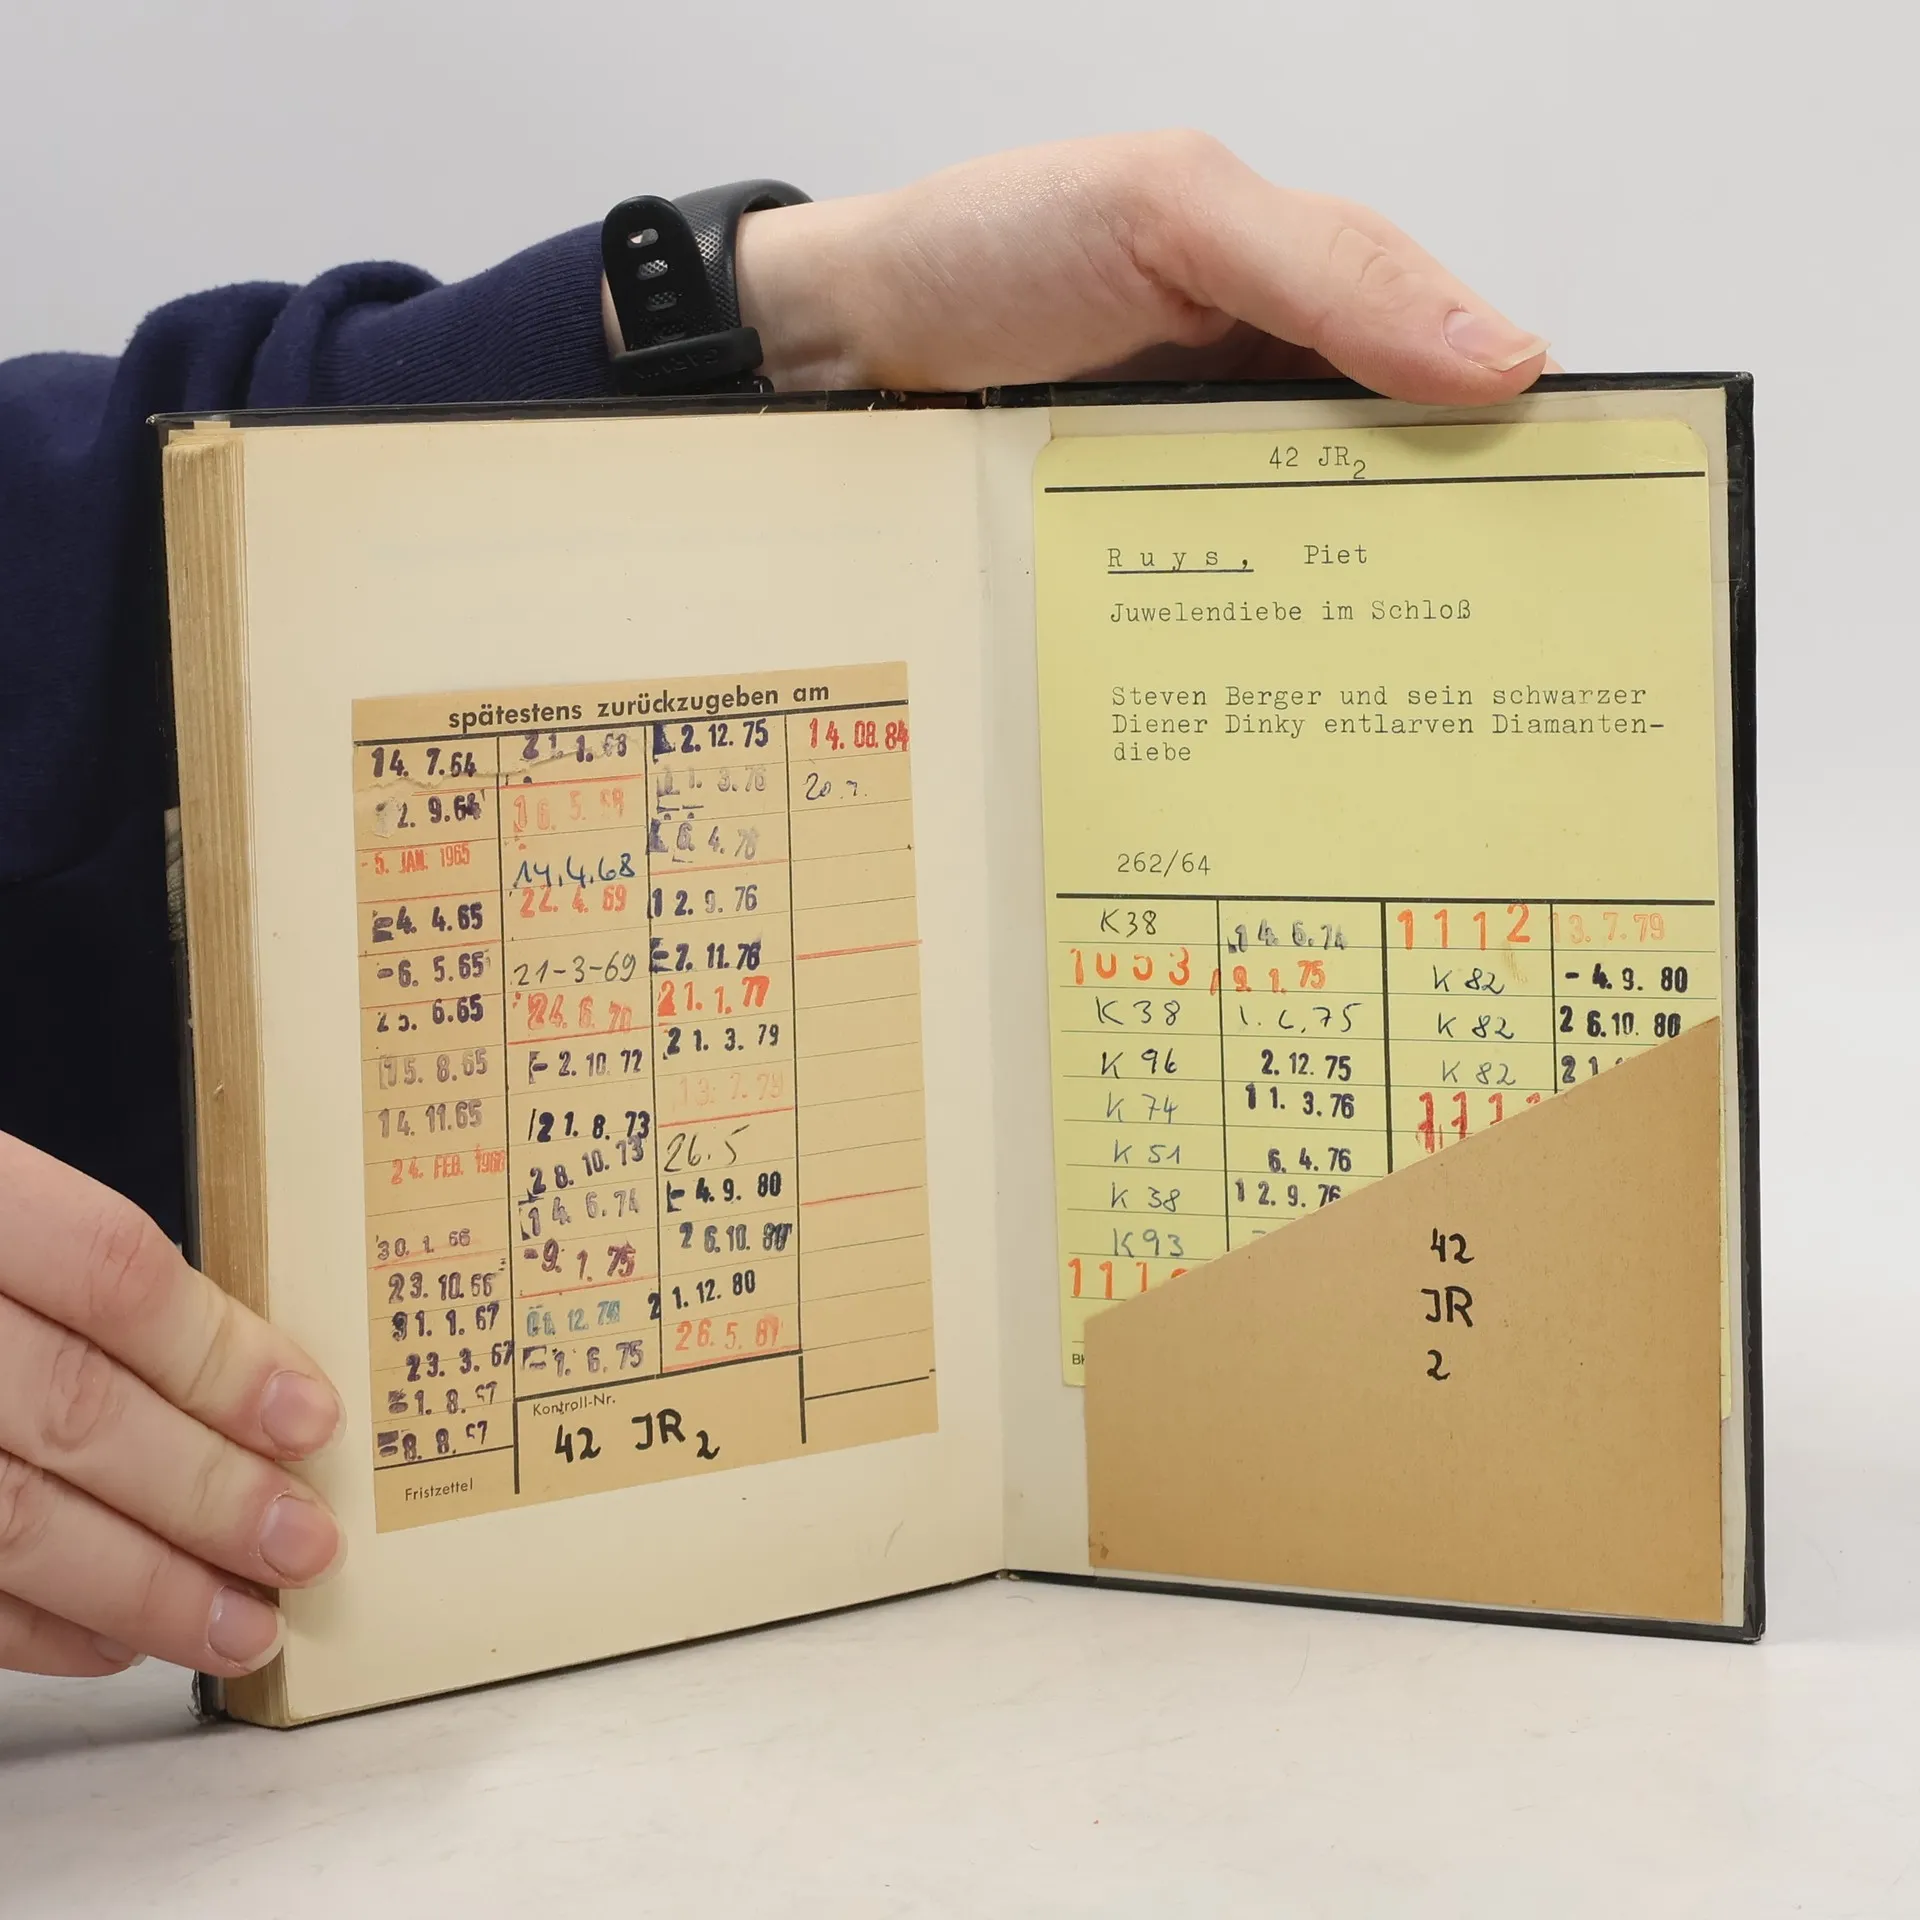 spätestens zurückzugeben am
14. 7.64
12. 9.64
- 5. JAN. 1965
-4. 4.65
-6. 5.65
6.65
15. 8.65
14. 11.65
24. FEB. 1966
30. 1. 66
23. 10.66
31. 1. 67
23. 3. 67
1. 8. 67
-8. 8. 67
Fristzettel
21. 1. 68
16. 5. 68
14.4.68
22. 4. 69
21-3-69
24. 6. 70
- 2. 10. 72
21. 8. 73
28. 10. 73
14. 6. 74
-9. 1. 75
12. 74
-1. 6. 75
Kontroll-Nr.
42 JR2
2. 12. 75
11. 3. 76
6. 4. 76
12. 9. 76
-7. 11. 76
21. 1. 77
21. 3. 79
13. 7. 79
26. 5
- 4. 9. 80
26. 10. 80
21. 12. 80
26. 5. 81
14. 08. 84
20. 7.
42 JR2
Ruys, Piet
Juwelendiebe im Schloß
Steven Berger und sein schwarzer
Diener Dinky entlarven Diamanten-
diebe
262/64
K38 14. 6. 74 1112 13. 7. 79
1003 9. 1. 75 K 82 - 4. 9. 80
K38 1. 6. 75 K 82 26. 10. 80
K 96 2. 12. 75 K 82 21
K 74 11. 3. 76
K 51 6. 4. 76
K 38 12. 9. 76
K93
42
JR
2